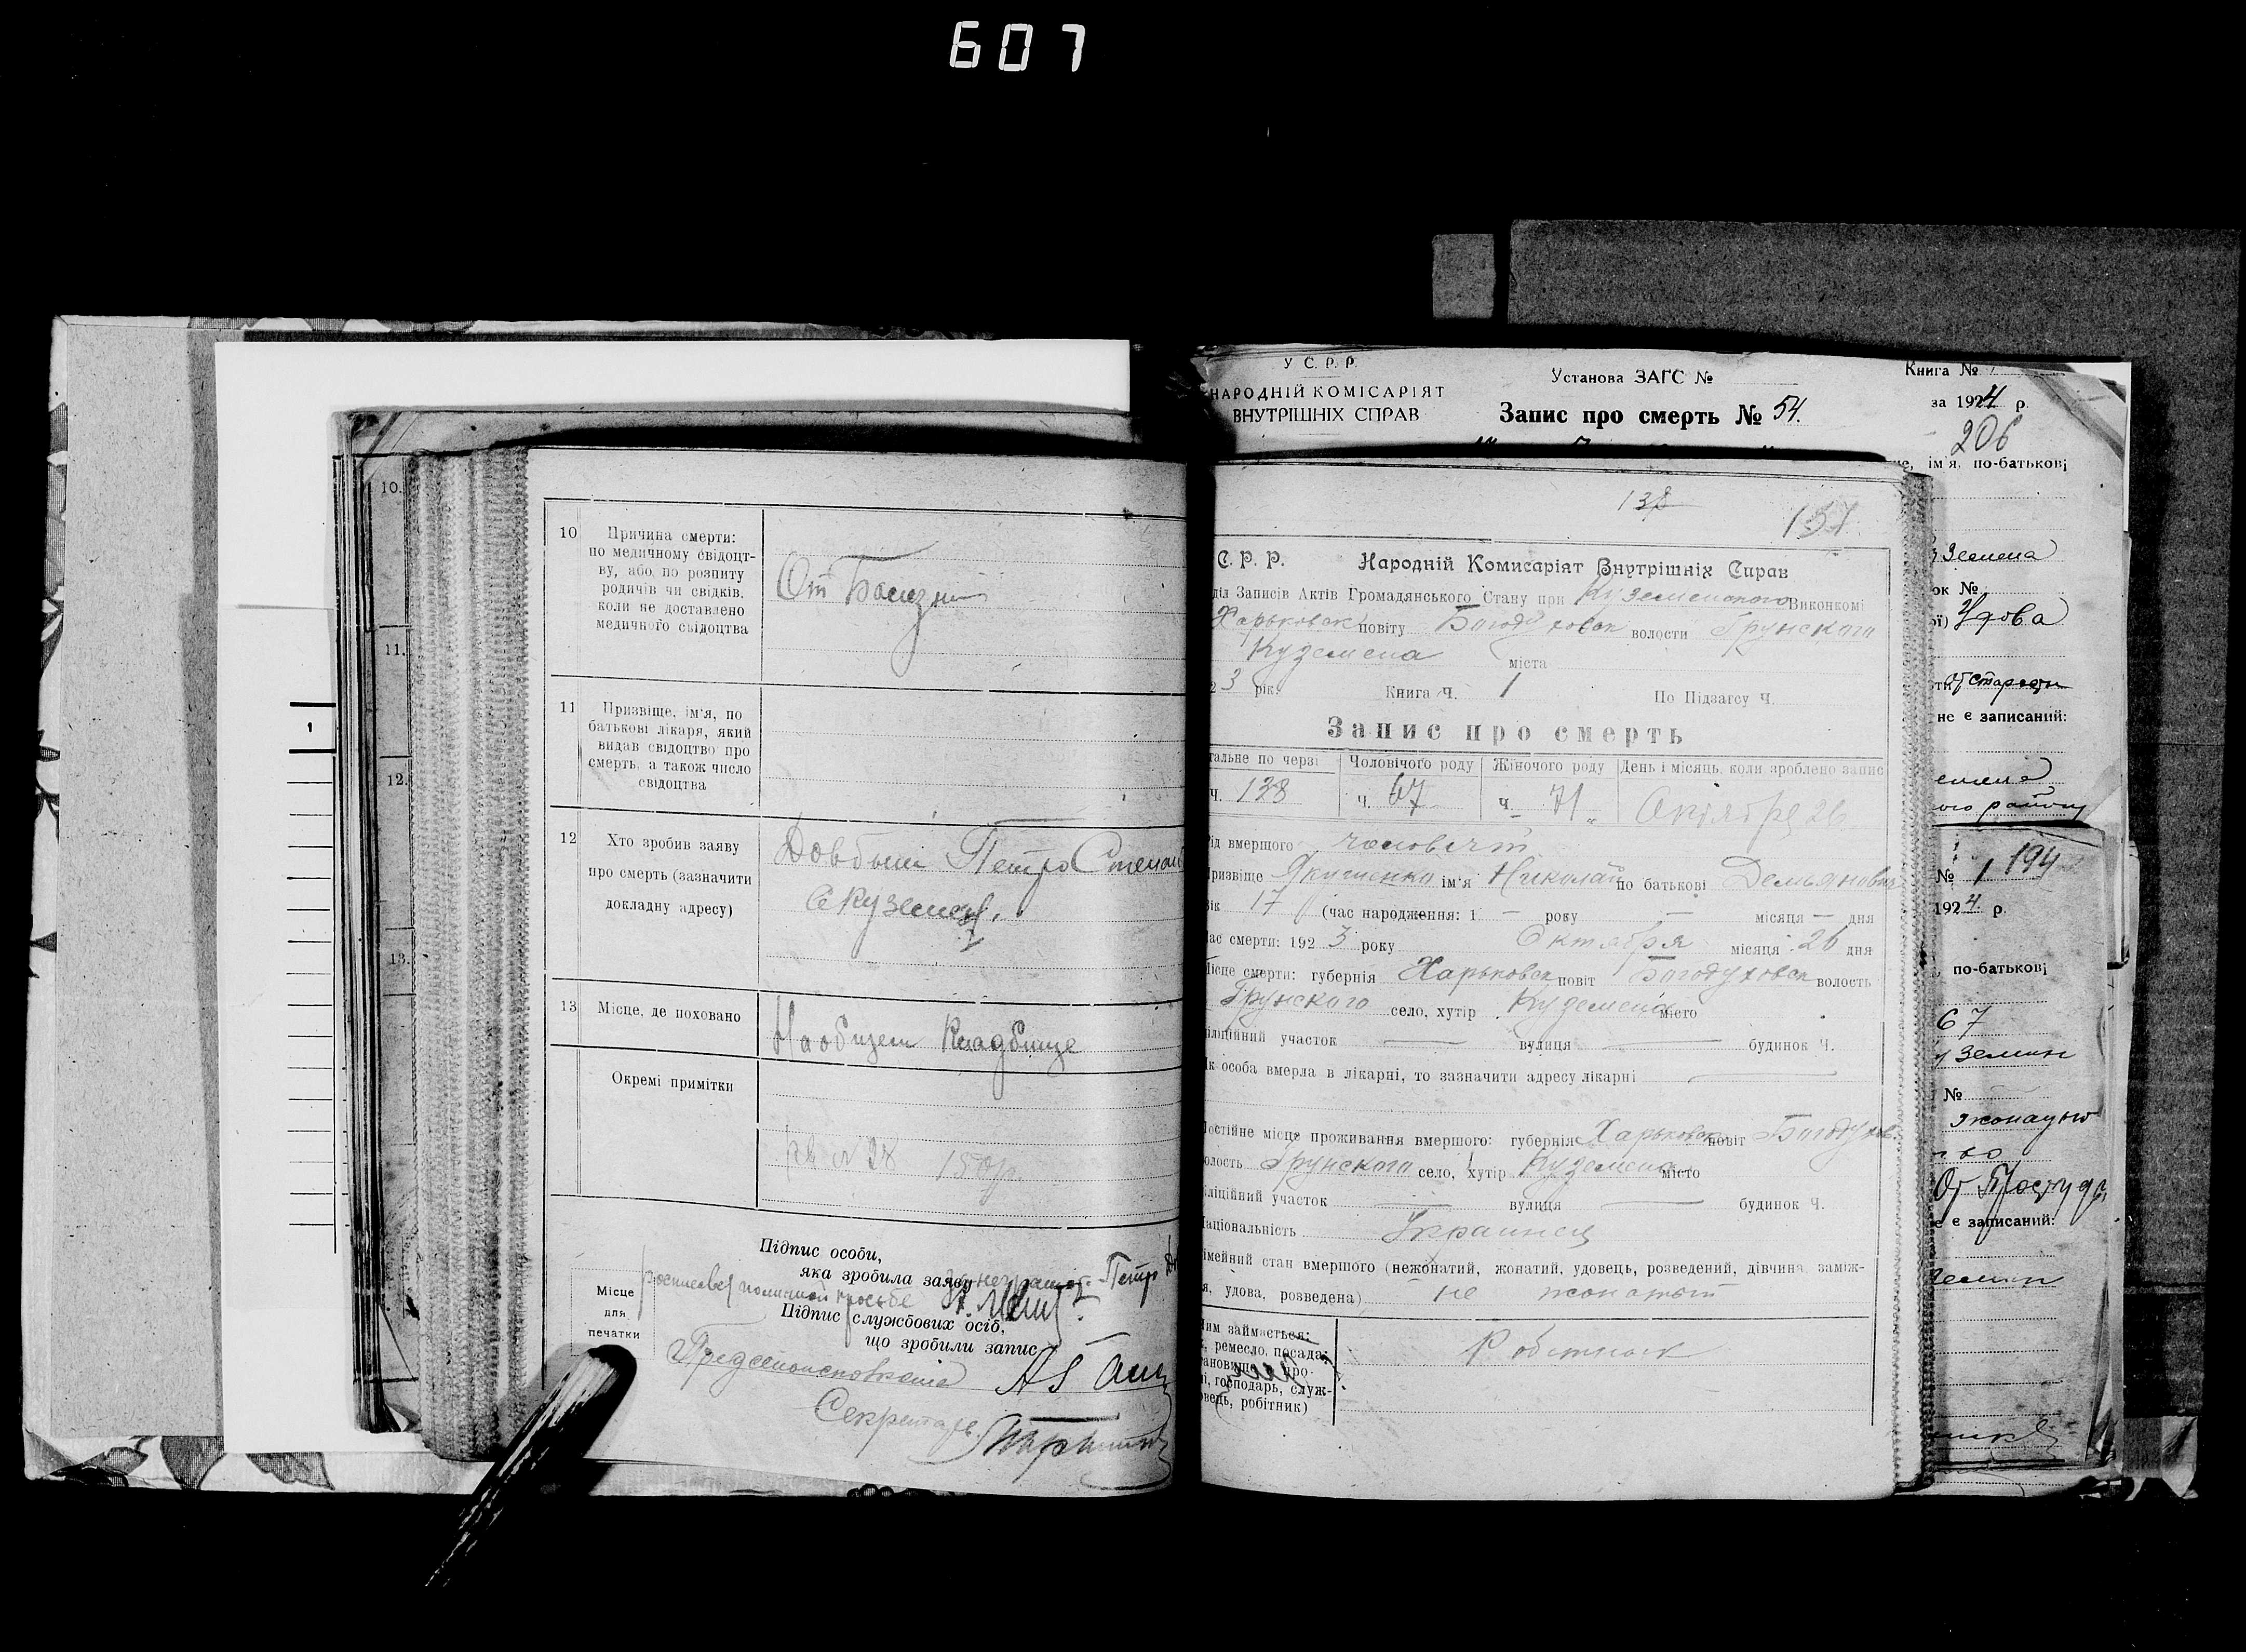 607
10.
11.
12.
13.
1
10
Причина смерти:
по медичному свідоцт-
ву, або, по розпиту
родичів чи свідків,
коли не доставлено
медичного свідоцтва
От Болизни
11
Призвіще, ім'я, по
батькові лікаря, який
видав свідоцтво про
смерть, а також число
свідоцтва
12
Хто зробив заяву
про смерть (зазначити
докладну адресу)
Довбыш Петро Степан
13
Місце, де поховано
На общем Кладбище
Окремі примітки
150р.
Підпис особи,
яка зробила заяву
Петр
Підпис службових осіб,
що зробили запис
Місце
для
печатки
Секретарь
У С. Р. Р.
НАРОДНІЙ КОМІСАРІЯТ
ВНУТРІШНІХ СПРАВ
Установа ЗАГС №
Запис про смерть № 54.
Книга №
за 1924 р.
206
ім'я, по-батькові
138
137
С. Р. Р. Народній Комисаріят Внутрішніх Справ
діл Записів Актів Громадянського Стану при Куземенского Виконкомі
Харьковск повіту Богодуховск волости Грунского
Куземена міста
2 3 рік. Книга Ч. 1 По Підзагсу Ч.
Запис про смерть
тальне по черзі Чоловічого роду Жіночого роду День і місяць, коли зроблено запис
Ч. 138 Ч. 67 Ч. 71 Октября 26
ід вмершого
ризвіще Якименко ім'я Николай по батькові Демьянович
ік 17 (час народження: 1 — року — місяця — дня
ас смерти: 192 3 року Октября місяця 26 дня
ісце смерти: губернія Харьковск повіт Богодуховск волость
Грунского село, хутір Куземена місто
іліційний участок — вулиця — будинок Ч.
к особа вмерла в лікарні, то зазначити адресу лікарні —
остійне місце проживання вмершого: губернія Харьковск повіт Богодухов.
олость Грунского село, хутір Куземена місто
іліційний участок — вулиця — будинок Ч.
аціональність Украинец
імейний стан вмершого (нежонатий, жонатий, удовець, розведений, дівчина, заміж-
я, удова, розведена) не жонатый
им займається:
, ремесло, посада;
ановище про-
і, господарь, служ-
вець, робітник)
Робітник
Удова
не є записаний:
№ 1 194
1924. р.
по-батькові
67
№
От Простуды
е є записаний: